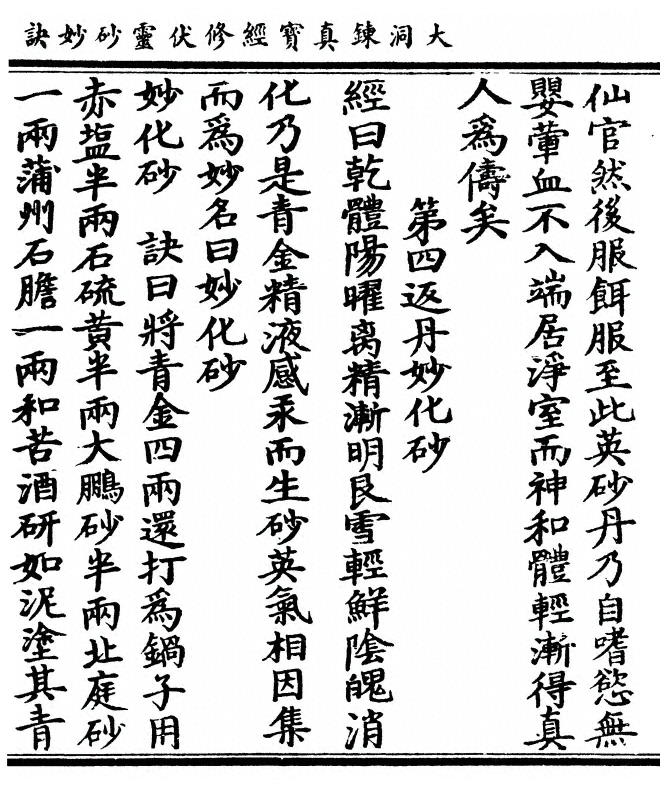 大洞鍊真寶經修伏靈砂妙訣
仙官然後服餌服至此英砂丹乃自嗜慾無
嬰葷血不入端居淨室而神和體輕漸得真
人為儔矣
第四返丹妙化砂
經曰乾體陽曜离精漸明艮雪輕鮮陰魄消
化乃是青金精液感汞而生砂英氣相因集
而為妙名曰妙化砂
妙化砂　訣曰將青金四兩還打為鍋子用
赤塩半兩石硫黃半兩大鵬砂半兩北庭砂
一兩蒲州石膽一兩和苦酒研如泥塗其青